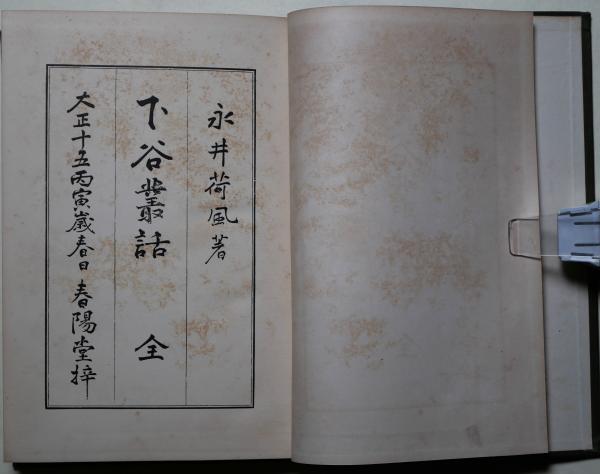 永井荷風著
下谷叢話 全
大正十五丙寅歲春日 春陽堂梓